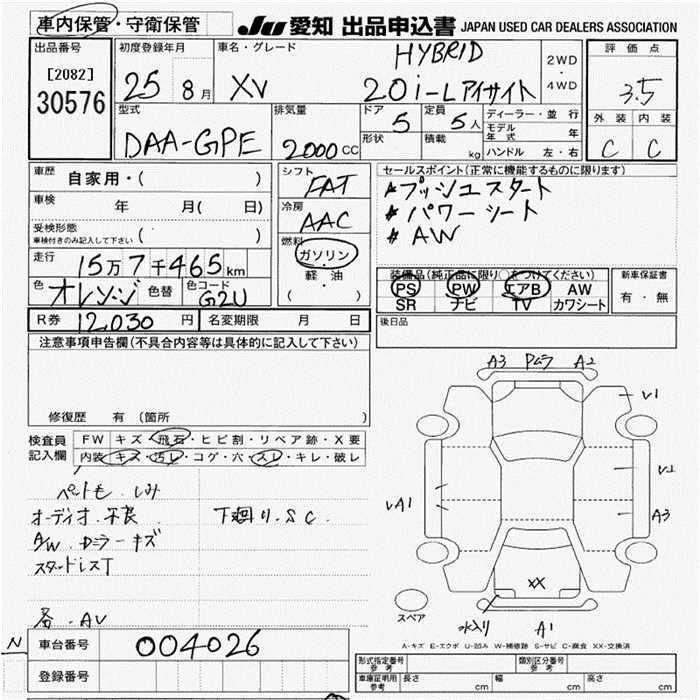 車内保管・守衛保管 JU 愛知 出品申込書 JAPAN USED CAR DEALERS ASSOCIATION
出品番号 [2082] 30576
初度登録年月 25 8月
車名・グレード XV HYBRID 2.0i-Lアイサイト
2WD・4WD
評価点 3.5
外装 C 内装 C
型式 DAA-GPE
排気量 2000CC
ドア 5 定員 5人
形状 積載 kg
ディーラー・並行
モデル年式 年
ハンドル 左・右
車歴 自家用・( )
車検 年 月( 日)
受検形態 ( )
車検付きのみ記入して下さい
走行 15万7千465km
色 オレンジ 色替 色コード G2U
R券 12,030円 名変期限 月 日
シフト FAT
冷房 AAC
燃料 ガソリン・軽・油 ( )
セールスポイント(正常に機能するものに限ります)
*プッシュスタート
*パワーシート
*AW
装備品(純正品に限り○をつけてください)
PS PW エアB AW
SR ナビ TV カワシート
新車保証書 有・無
後日品
注意事項申告欄(不具合内容等は具体的に記入して下さい)
修復歴 有 (箇所 )
検査員記入欄
FW キズ・飛石・ヒビ割・リペア跡・X要
内装 キズ・汚レ・コゲ・穴・スレ・キレ・破レ
ペットモ.しみ
オーディオ.不良 下廻り.SC.
A/W.Dミラーキズ
スタッドレスT
AV
N 車台番号 004026
登録番号
A3 Dムラ A2
V1
A3
VA1
XX
水入り A1
スペア
A-キズ E-エクボ U-凹み W-補修跡 S-サビ C-腐食 XX-交換済
形式指定番号 参考 類別区分番号 参考
車庫証明用 参考 長さ cm 幅 cm 高さ cm